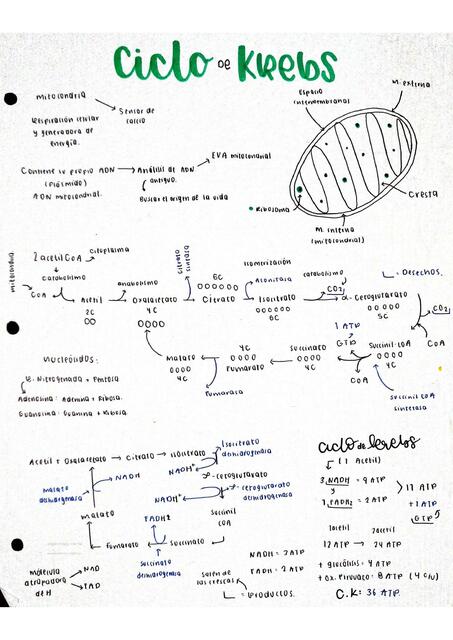 Ciclo de Krebs
mitocondria
Sensor de
calcio
Respiración celular
y generadora de
energía.
Contiene su propio ADN
(plásmido)
ADN mitocondrial.
Análisis de ADN
antiguo.
EVA mitocondrial
Buscar el origen de la vida
Espacio
intermembranal
M. externa
Ribosoma
Cresta
M. interna
(mitocondrial)
mitocondria
2 acetil CoA
citoplasma
catabolismo
CoA
Acetil
2C
anabolismo
Oxalacetato
4C
citrato
sintasa
6C
Citrato
Isomerización
Aconitasa
Isocitrato
6C
catabolismo
CO2
α-Cetoglutarato
5C
Desechos.
CO2
CoA
1 ATP
GTP
Succinil-CoA
4C
CoA
succinil CoA
sintetasa
Succinato
4C
4C
Fumarato
Fumarasa
Malato
4C
Nucleóidos:
B. Nitrogenada + Pentosa
Adenosina: Adenina + Ribosa.
Guanosina: Guanina + Ribosa.
Acetil + Oxalacetato → Citrato → Isocitrato
Isocitrato
dehidrogenasa
NADH
malato
dehidrogenasa
NADH
α-cetoglutarato
α-cetoglutarato
dehidrogenasa
NADH
malato
FADH2
Succinil
COA
Fumarato
Succinato
Succinato
dehidrogenasa
molécula
atrapadora
de H
NAD
FAD
Salen de
las crestas
Productos.
NADH = 3ATP
FADH = 2ATP
Ciclo de krebs
(1 Acetil)
3 NADH = 9 ATP
y
1 FADH2 = 2ATP
11 ATP
+1 ATP
GTP
1acetil
2acetil
12 ATP → 24 ATP
+ glucólisis = 4 ATP
+ Ox. Piruvato = 8 ATP
C.K: 36 ATP